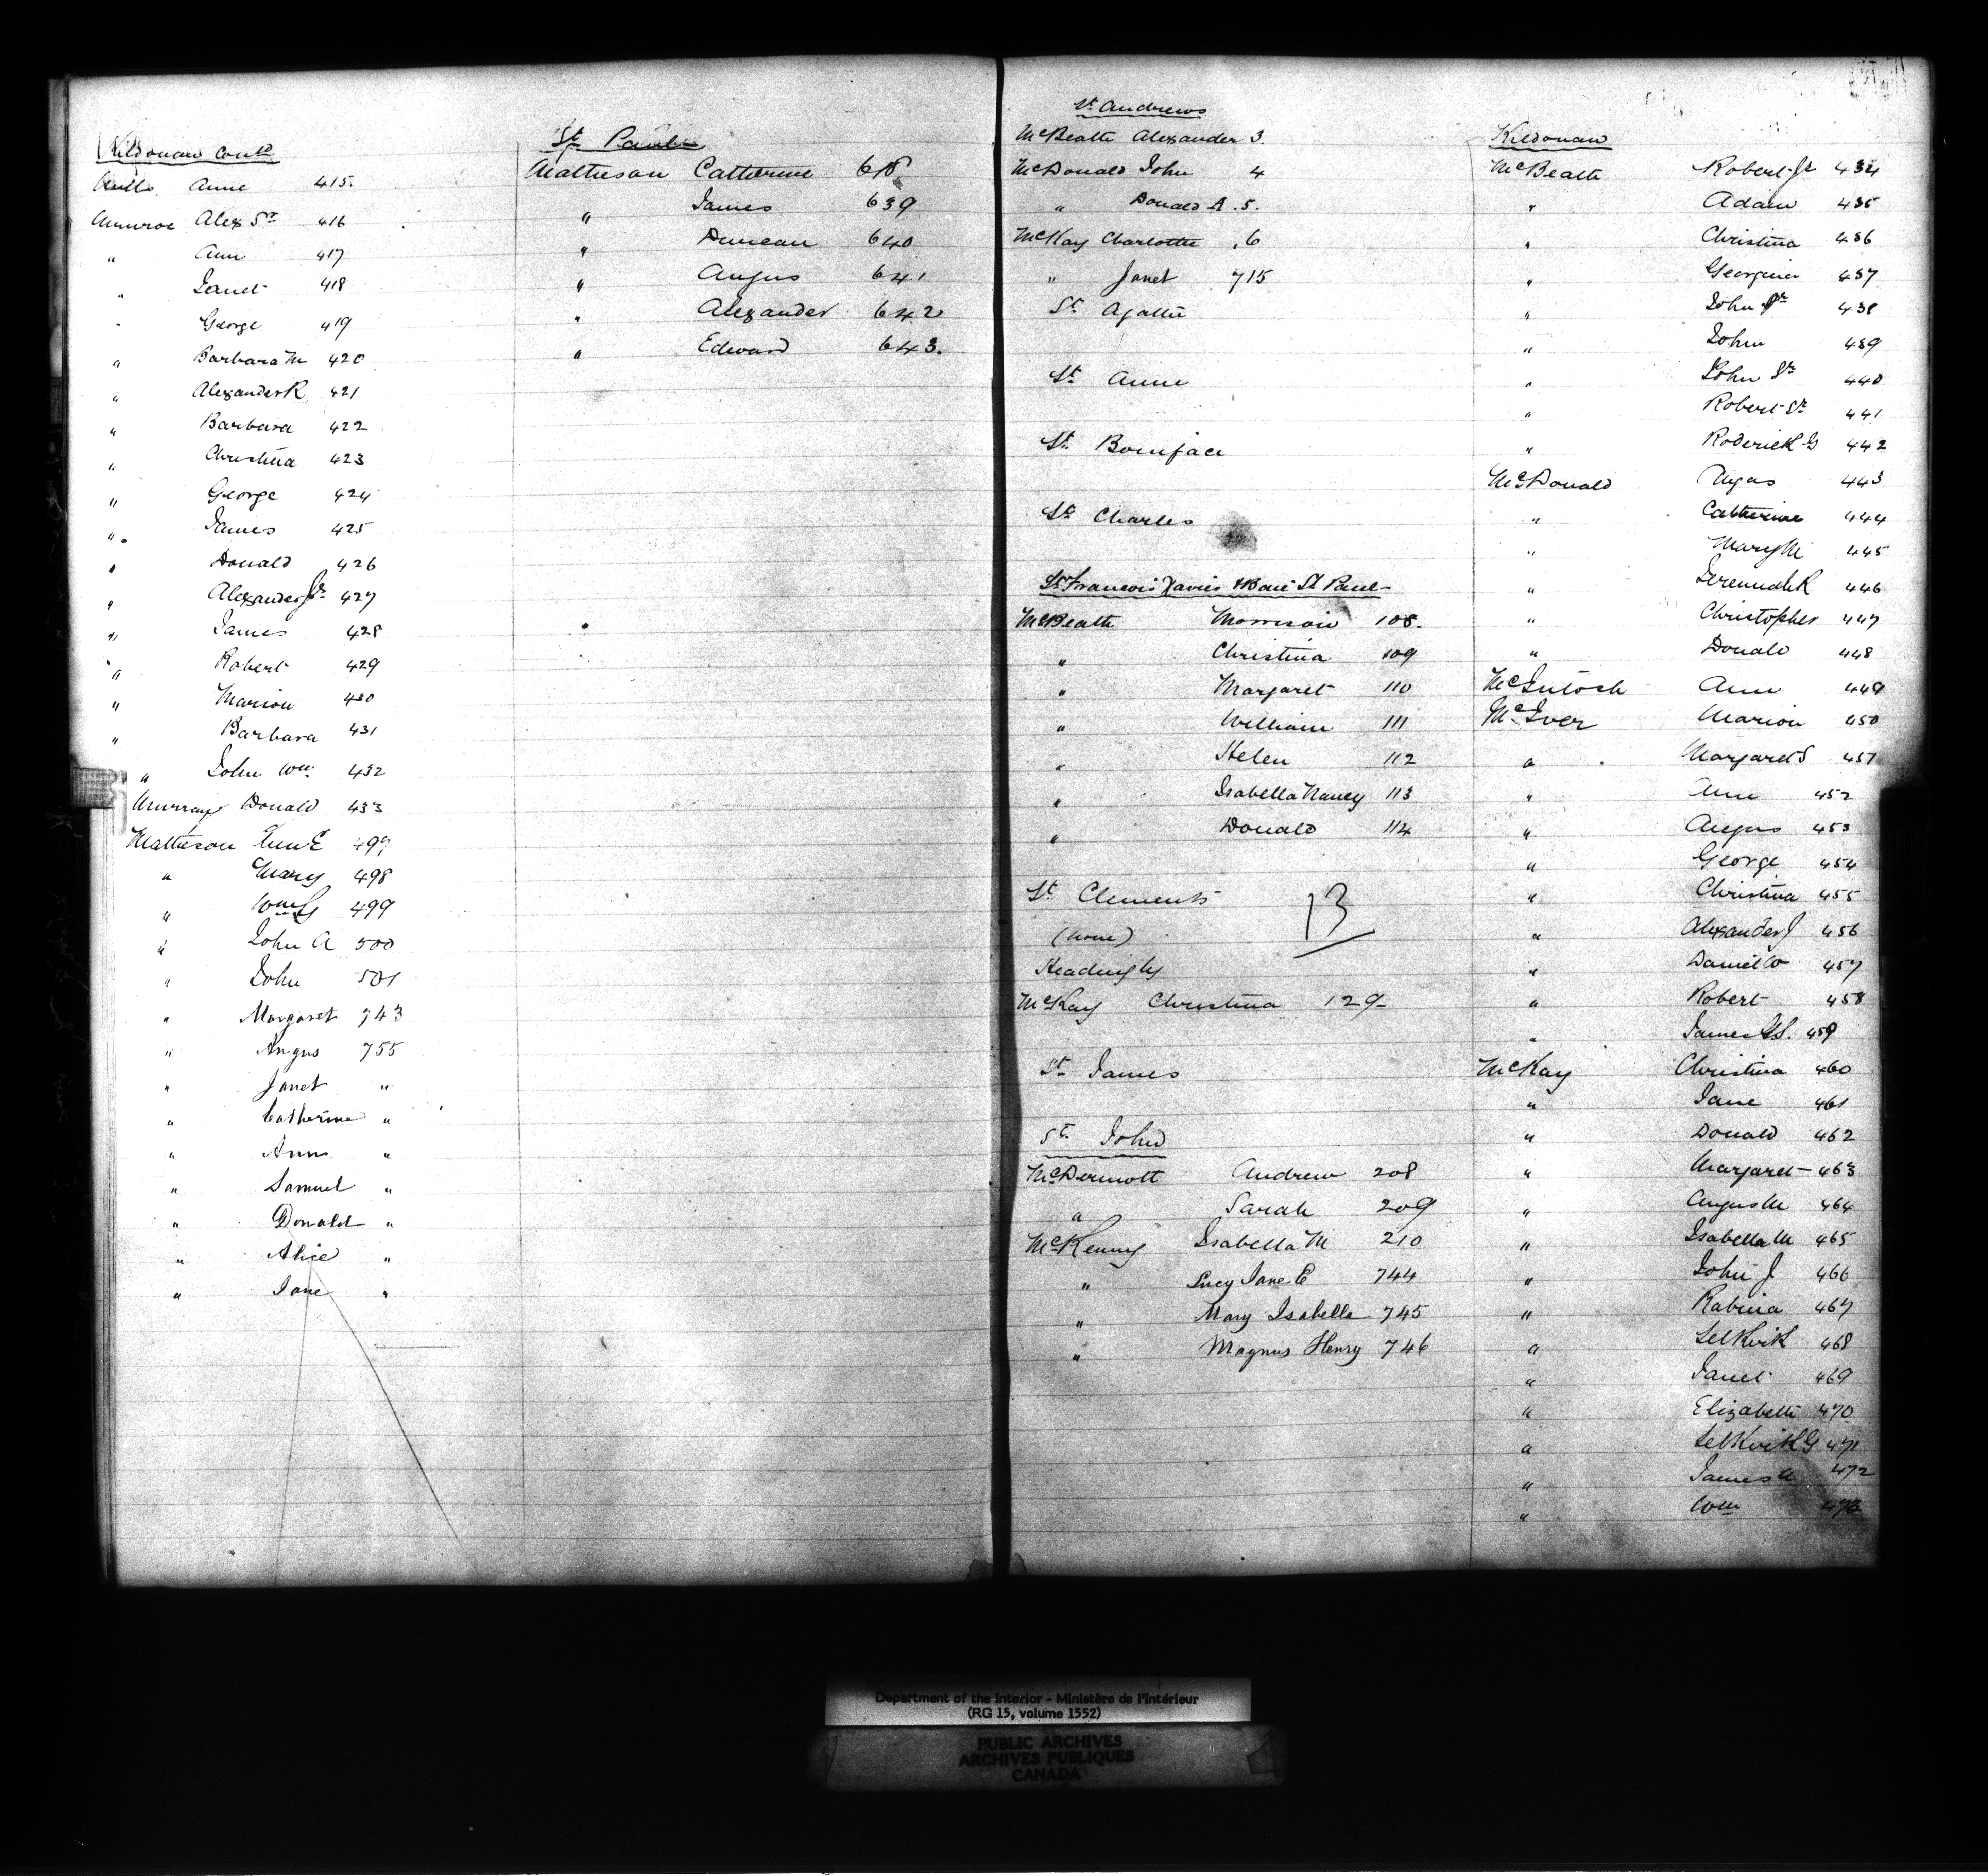 Kildonan Contd
Mills Anne 415.
Munroe Alex Sr 416
" Ann 417
" Janet 418
" George 419
" Barbara M 420
" Alexander R 421
" Barbara 422
" Christina 423
" George 424
" James 425
" Donald 426
" Alexander Jr 427
" James 428
" Robert 429
" Marion 430
" Barbara 431
" John Wm 432
Murray Donald 433
Matheson Ann E 497
" Mary 498
" Wm G 499
" John A 500
" John 501
" Margaret 743
" Angus 755
" Janet "
" Catherine "
" Ann "
" Samuel "
" Donald "
" Alice "
" Jane "
St Pauls
Matheson Catherine 618
" James 639
" Duncan 640
" Angus 641
" Alexander 642
" Edward 643.
St Andrews
McBeath Alexander 3.
McDonald John 4
" Donald A. 5.
McKay Charlotte .6
" Janet 715
St Agathe
St Anne
St Boniface
St Charles
St Francois Xavier & Baie St Paul
McBeath Morrison 108.
" Christina 109
" Margaret 110
" William 111
" Helen 112
" Isabella Nancy 113
" Donald 114
St Clements 13
(none)
Headingly
McKay Christina 129-
St James
St John
McDermott Andrew 208
" Sarah 209
McKenny Isabella M 210
" Lucy Jane E 744
" Mary Isabella 745
" Magnus Henry 746
Kildonan
McBeath Robert Jr 434
" Adam 435
" Christina 436
" Georgina 437
" John Jr 438
" John 439
" John Sr 440
" Robert Sr 441
" Roderick G 442
McDonald Angus 443
" Catherine 444
" Mary M 445
" Jeremiah R 446
" Christopher 447
" Donald 448
McIntosh Ann 449
McIver Marion 450
" Margaret S 451
" Ann 452
" Angus 453
" George 454
" Christina 455
" Alexander J 456
" Daniel W 457
" Robert 458
" James 459
McKay Christina 460
" Jane 461
" Donald 462
" Margaret 463
" Angus M 464
" Isabella M 465
" John J 466
" Rabina 467
" Selkirk 468
" Janet 469
" Elizabeth 470
" Selkirk G 471
" James A 472
" Wm 473
Department of the Interior - Ministère de l'Intérieur
(RG 15, volume 1552)
PUBLIC ARCHIVES
ARCHIVES PUBLIQUES
CANADA